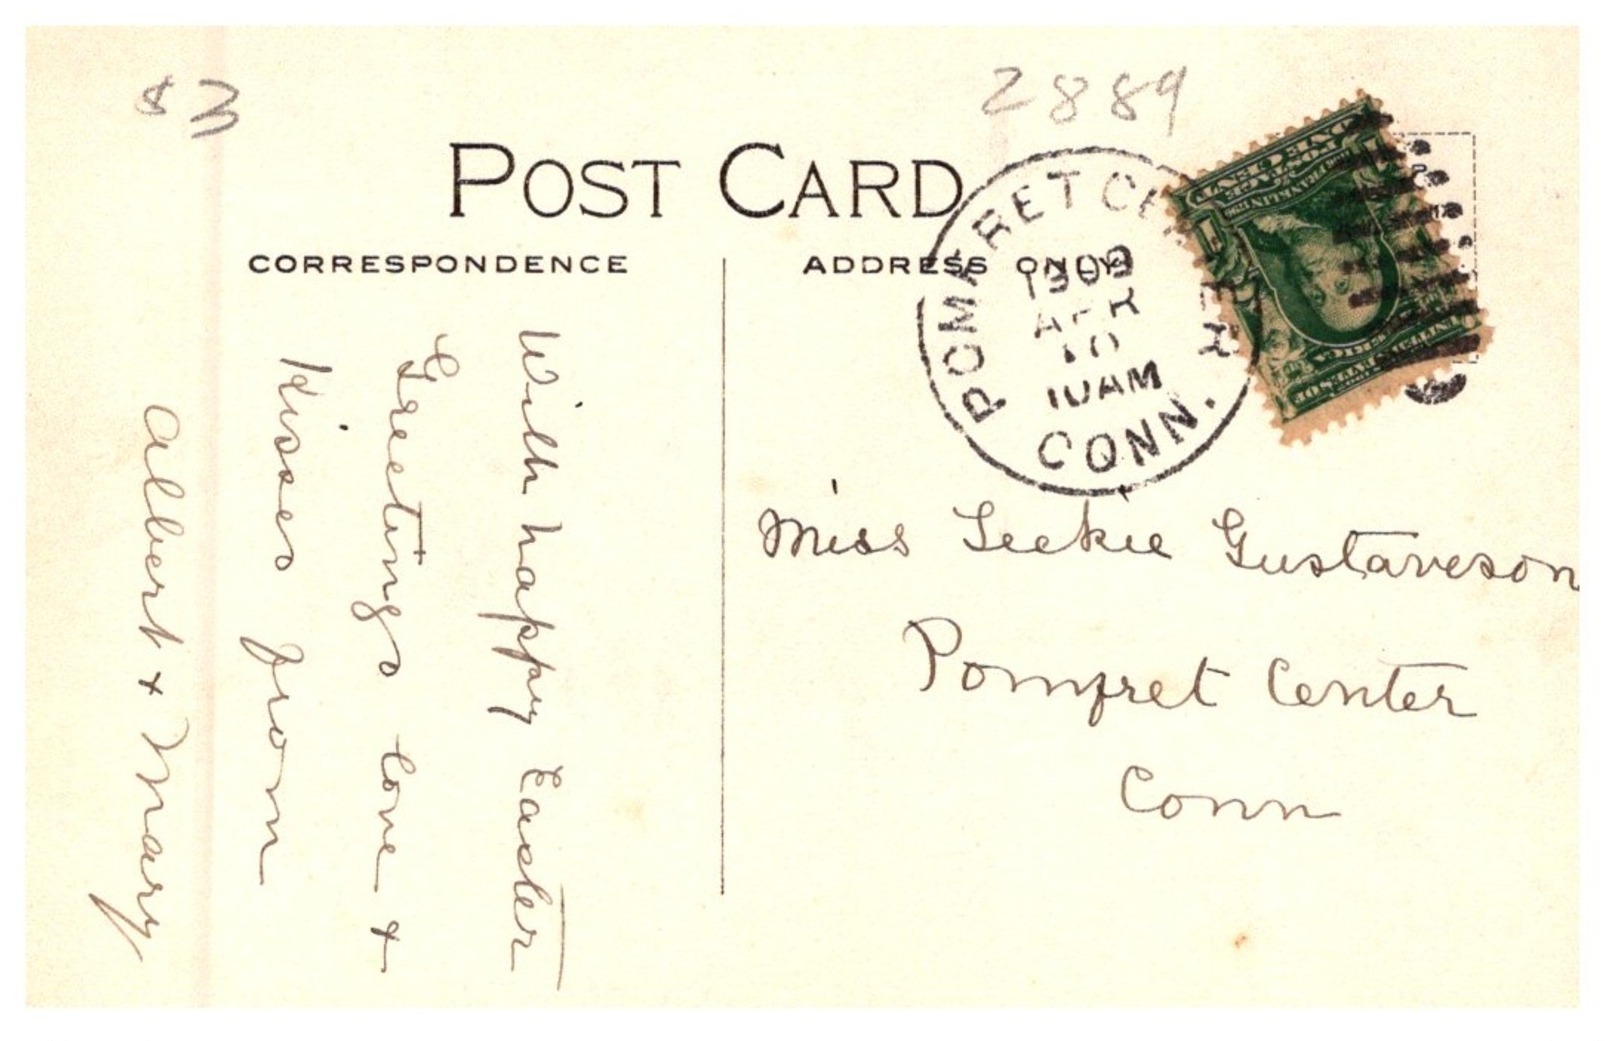 $3
2889
POST CARD
CORRESPONDENCE
ADDRESS ONLY
POMFRET CENTER
1909
APR
10
10AM
CONN.
With happy Easter
Greetings love +
Kisses from
Albert + Mary
Miss Leckie Gustaveson
Pomfret Center
Conn
ONE CENT
POSTAGE
FRANKLIN